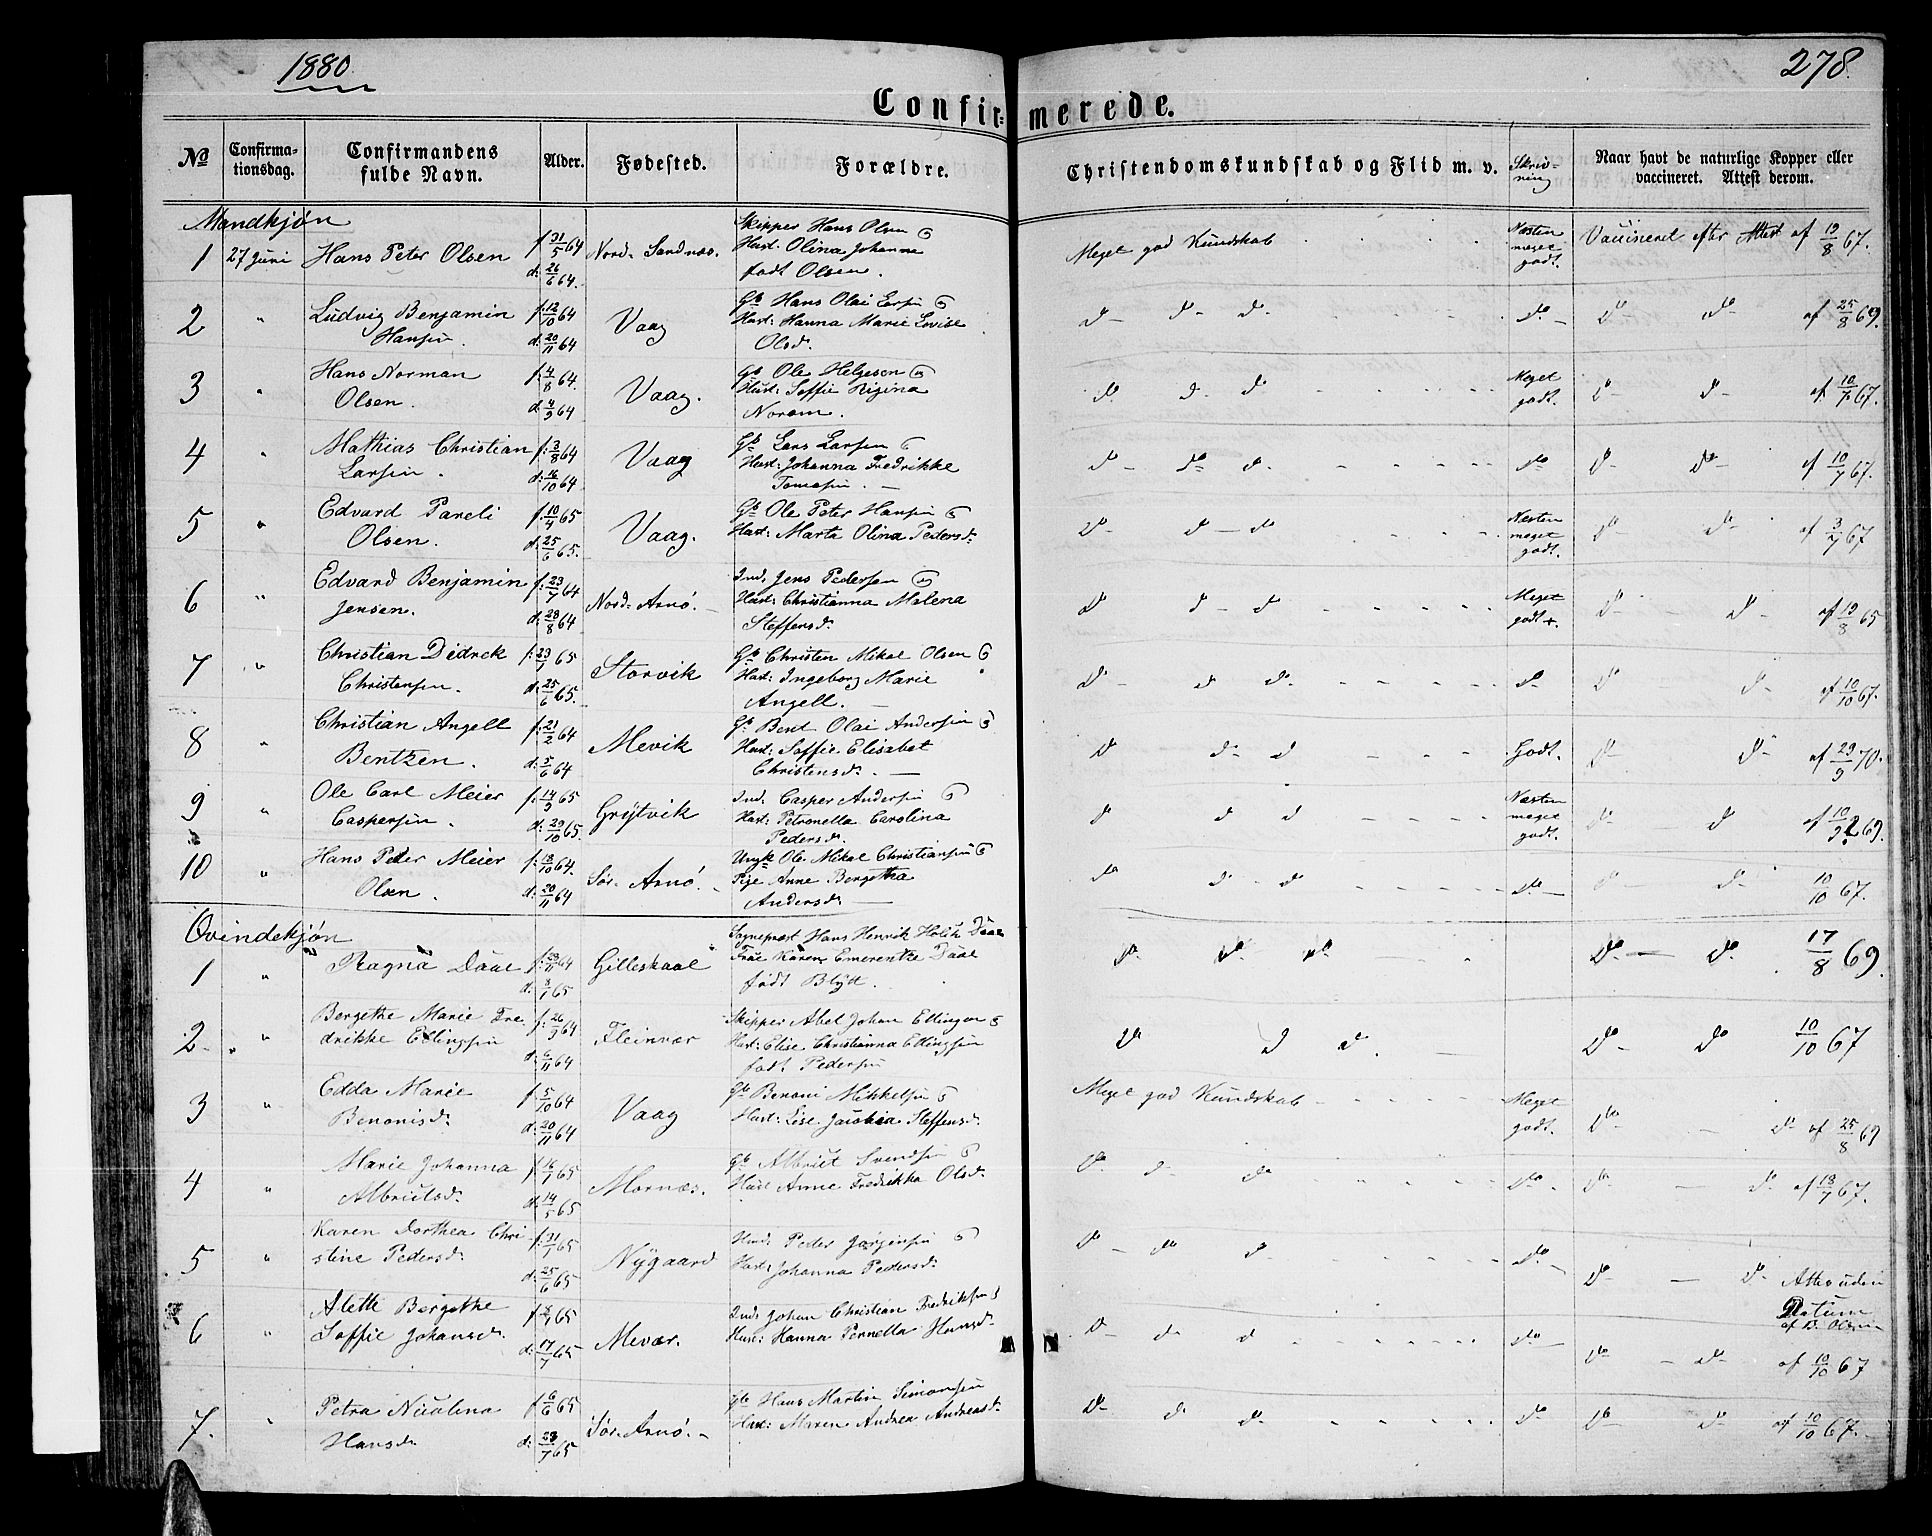 1880
278.
Confirmerede.
No
Confirma-
tionsdag.
Confirmandens
fulde Navn.
Alder.
Fødested.
Forældre.
Christendomskundskab og Flid m. v.
Skriv-
ning
Naar havt de naturlige Kopper eller
vaccineret. Attest derom.
Mandkjøn
1 27 Juni Hans Peter Olsen f 31/5 64 d: 26/6 64. Nord. Sandnæs.
Skipper Hans Olsen
Hust: Olina Johanna
født Olsen.
Meget god Kundskab
Næsten
meget
godt.
Vaccineret efter Attest af 19/8 67.
2 " Ludvig Benjamin
Hansen. f. 12/10 64 d: 20/11 64 Vaag
Gb Hans Olai Larsen
Hust: Hanna Marie Lovise
Olsd.
Do Do Do Do Do Do af 25/8 69.
3 " Hans Norman
Olsen. f. 4/8 64. d. 4/9 64 Vaag.
Gb Ole Helgesen
Hust: Soffie Regina
Norum.
Do Do Do
Meget
godt.
Do Do af 10/7 67.
4 " Mathias Christian
Larsen. f. 3/8 64 d: 16/10 64 Vaag
Gb Lars Larsen
Hust: Johanna Fredrikke
Tomasen.
Do Do Do Do Do Do af 10/7 67.
5 " Edvard Pareli
Olsen. f. 10/4 65 d: 25/6 65. Vaag.
Gb Ole Peter Hansen
Hust: Marta Olina Pedersd:
Do Do Do
Næsten
meget
godt.
Do Do af 3/7 67
6 " Edvard Benjamin
Jensen. f: 23/7 64 d: 28/8 64 Nord. Arnø.
Ind. Jens Pedersen
Hust: Christianna Malena
Steffensd.
Do Do Do
Meget
godt+.
Do Do af 19/8 65
7 " Christian Didrek
Christensen. f: 23/1 65 d: 25/6 65. Storvik
Gb Christen Mikal Olsen
Hust: Ingeborg Marie
Angell.
Do Do Do Do Do Do af 10/10 67.
8 " Christian Angell
Bentzen. f: 21/2 64 d: 5/6 64 Mevik
Gb Bent Olai Andersen
Hust: Soffie Elisabet
Christensd.
Do Do Do Godt. Do Do af 29/9 70.
9 " Ole Carl Meier
Caspersen. f: 14/9 65 d: 29/10 65. Grytvik
Ind. Casper Andersen
Hust: Petronella Carolina
Pedersd.
Do Do Do
Næsten
meget
godt.
Do Do af 10/9 69.
10 " Hans Peder Meier
Olsen. f: 18/10 64. d: 20/11 64 Sør. Arnø.
Ungk Ole Mikal Christiansen
Pige Anne Bergetha
Andersd.
Do Do Do Do Do Do 10/10 67.
Qvindekjøn
1 " Ragna Daae f: 29/11 64 d: 8/1 65 Gilleskaal
Sognepræst Hans Henrik Daae
Frue Karen Emerentze Daae
født Blydt.
Do Do Do Do Do 17/8 69.
2. " Bergethe Marie Fre-
drikke Ellingsen f: 26/9 64 d: 6/11 64 Fleinvær
Skipper Abel Johan Ellingsen
Hust: Elise Christianna Ellingsen
født Pedersen
Do Do Do Do Do 10/10 67
3 " Edda Marie
Benonisd. f. 5/10 64 d: 20/11 64 Vaag
Gb Benoni Mikkelsen
Hust: Lise Jacobea Steffensd.
Meget god Kundskab
Meget
godt.
Do Do af 25/8 69
4 " Marie Johanna
Albrictsd. f 16/1 65 d: 14/5 65 Mornæs.
Gb Albrict Svendsen
Hust Anne Fredrikka Olsd.
Do Do Do Do Do Do af 13/7 67.
5 " Karen Dorthea Chri-
stine Pedersd. f: 31/1 65 d: 25/6 65 Nygaard
Peder Jørgensen
Hust: Johanna Pedersd.
Do Do Do Do Do Do Attest uden
Datum
af B. Olsen
6 " Alette Bergethe
Soffie Johansd. d: 17/7 65 Mevær.
Ind. Johan Christian Fredriksen
Hust: Hanna Pernella Hansd.
Do Do Do Do Do Do af 10/10 67
7. " Petra Nicolina
Hansd. f 6/6 65 d: 23/7 65 Sør. Arnø.
Gb Hans Martin Simonsen
Hust: Maren Andrea Andreasd.
Do Do Do Do Do Do af 10/10 67.